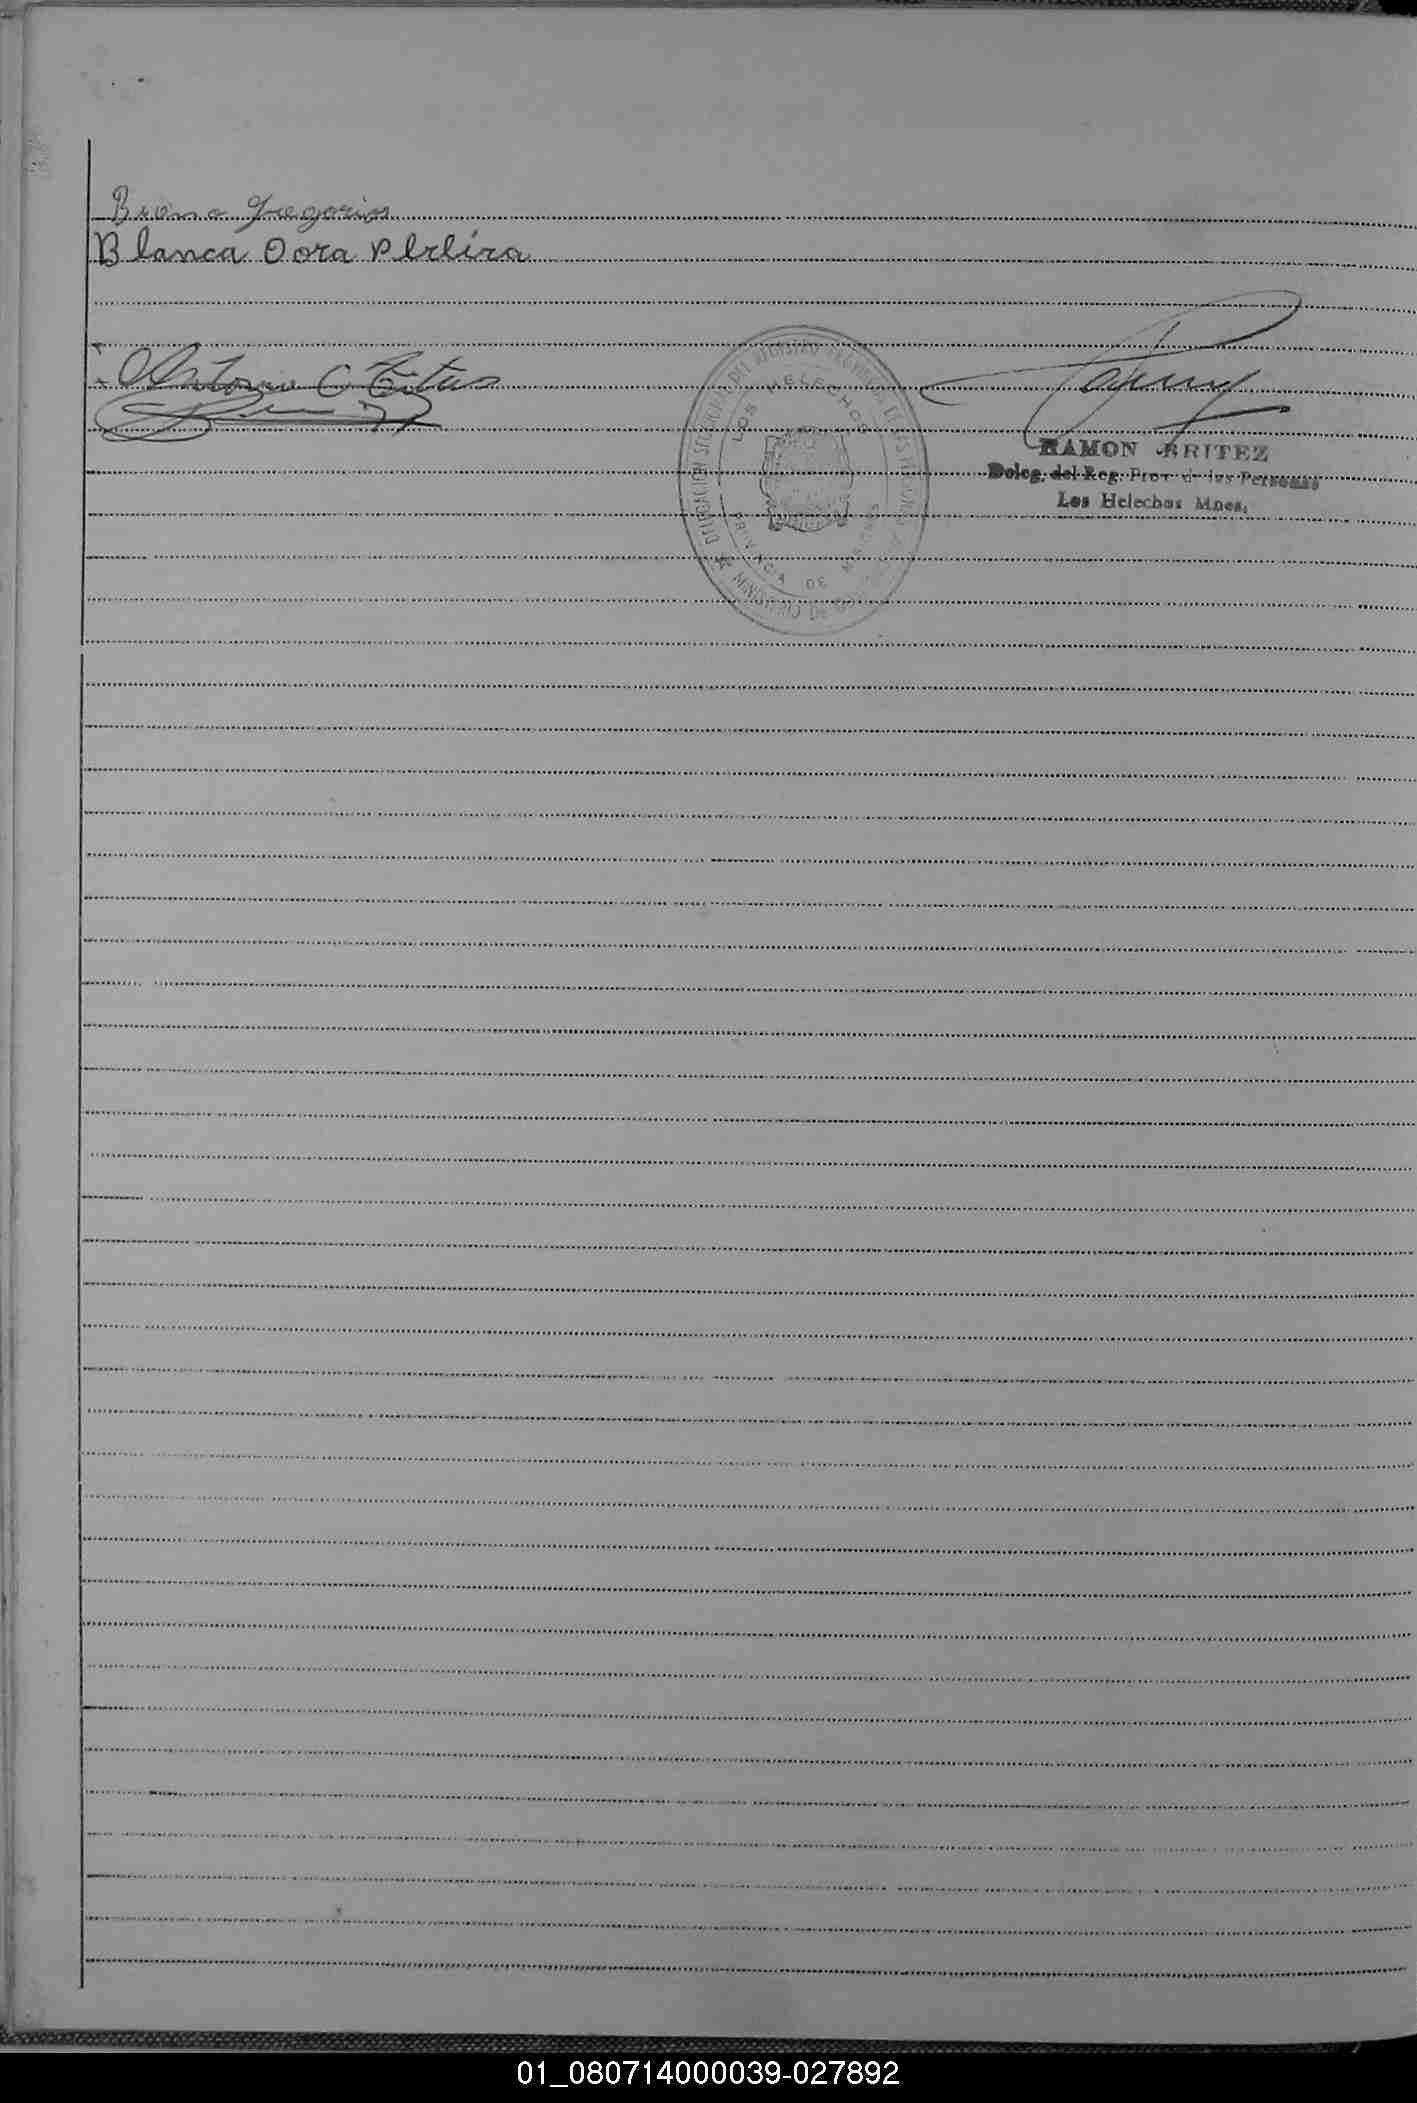 Bruno Gregorios
Blanca Dora Pereira
Antonio C
DELEGACION SECCIONAL DEL REGISTRO PROVINCIAL DE LAS PERSONAS
LOS HELECHOS
PROVINCIA DE MISIONES
MINISTERIO DE
RAMON BRITEZ
Deleg. del Reg. Prov de las Personas
Los Helechos Mnes.
01_080714000039-027892